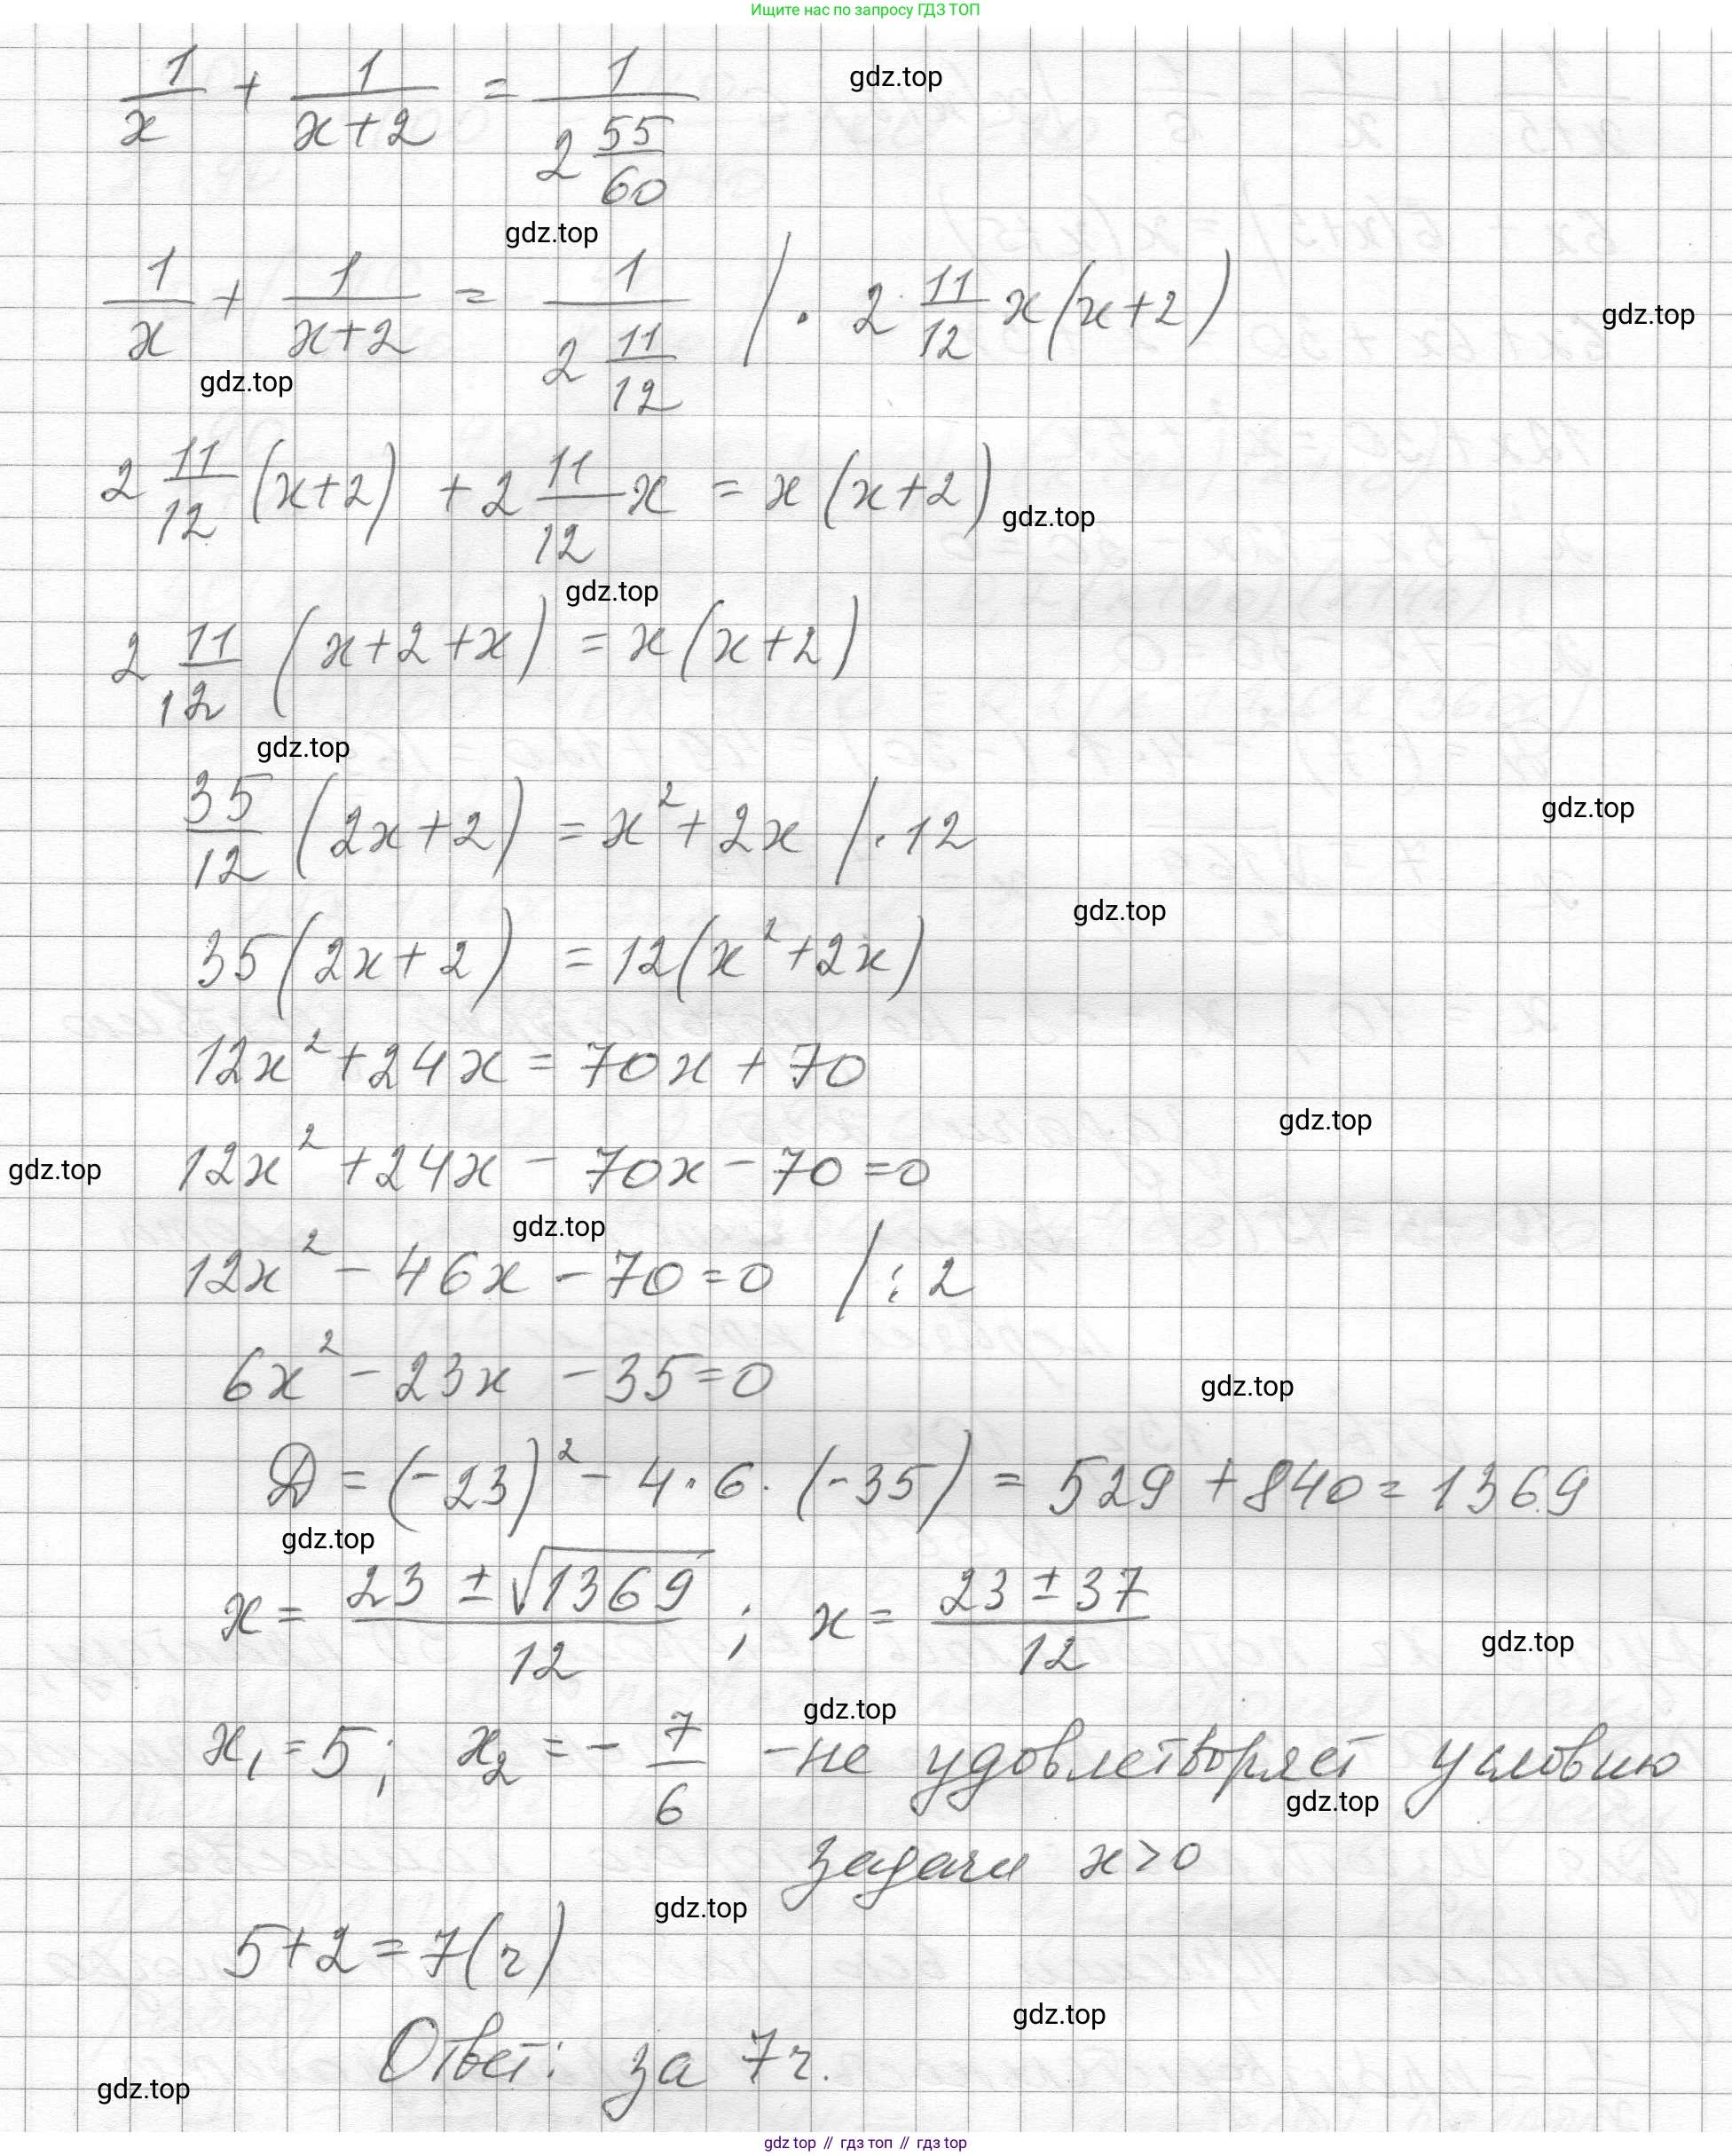 Ищите нас по запросу ГДЗ ТОП
1/x + 1/(x+2) = 1/(2 55/60)
gdz.top
gdz.top
1/x + 1/(x+2) = 1/(2 11/12) | · 2 11/12 x(x+2)
gdz.top
gdz.top
2 11/12 (x+2) + 2 11/12 x = x(x+2)
gdz.top
gdz.top
2 11/12 (x+2+x) = x(x+2)
gdz.top
35/12 (2x+2) = x²+2x | · 12
gdz.top
gdz.top
35(2x+2) = 12(x²+2x)
12x²+24x = 70x + 70
gdz.top
12x² +24x - 70x - 70 = 0
gdz.top
gdz.top
12x² - 46x - 70 = 0 | : 2
6x² - 23x - 35 = 0
gdz.top
D = (-23)² - 4 · 6 · (-35) = 529 + 840 = 1369
gdz.top
x = (23 ± √1369)/12 ; x = (23 ± 37)/12
gdz.top
gdz.top
x₁ = 5; x₂ = - 7/6 - не удовлетворяет условию
gdz.top
задачи x > 0
gdz.top
5+2 = 7(ч)
gdz.top
Ответ: за 7ч.
gdz.top
gdz top // гдз топ // гдз top